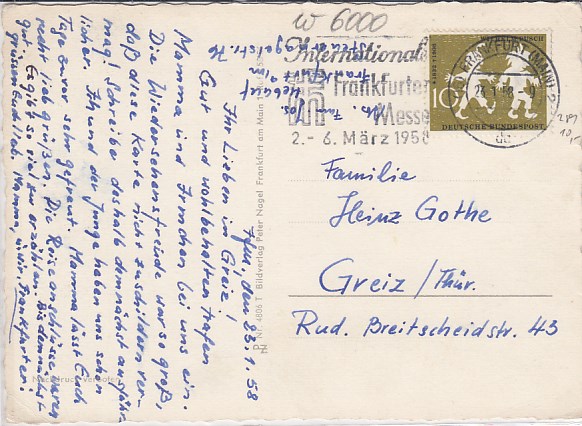 W 6000
Internationale
Frankfurter
Messe
2.-6. März 1958
FRANKFURT (MAIN) 2
10
DEUTSCHE BUNDESPOST
Familie
Heinz Gothe
Greiz/Thür.
Rud. Breitscheidstr. 43
Ffm, den 23.1.58
Ihr Lieben in Greiz!
Gut und wohlbehalten trafen
Mamma und Frochen bei uns ein.
Die Wiedersehensfreude war so groß,
daß diese Karte nicht zuschildern ver-
mag! Schreibe deshalb demnächst ausführ-
licher. Ihr und der Junge haben uns schon
Tage zuvor sehr gefreut. Mamma lässt Euch
recht lieb grüßen. Die Reiseanschlüsse waren
gut. Es gibt so viel zu erzählen. Bis demnächst
grüssen Euch lieb Mamma, u. wir Frankfurter!
Nr. 4806 T Bildverlag Peter Nagel Frankfurt am Main
Nachdruck verboten